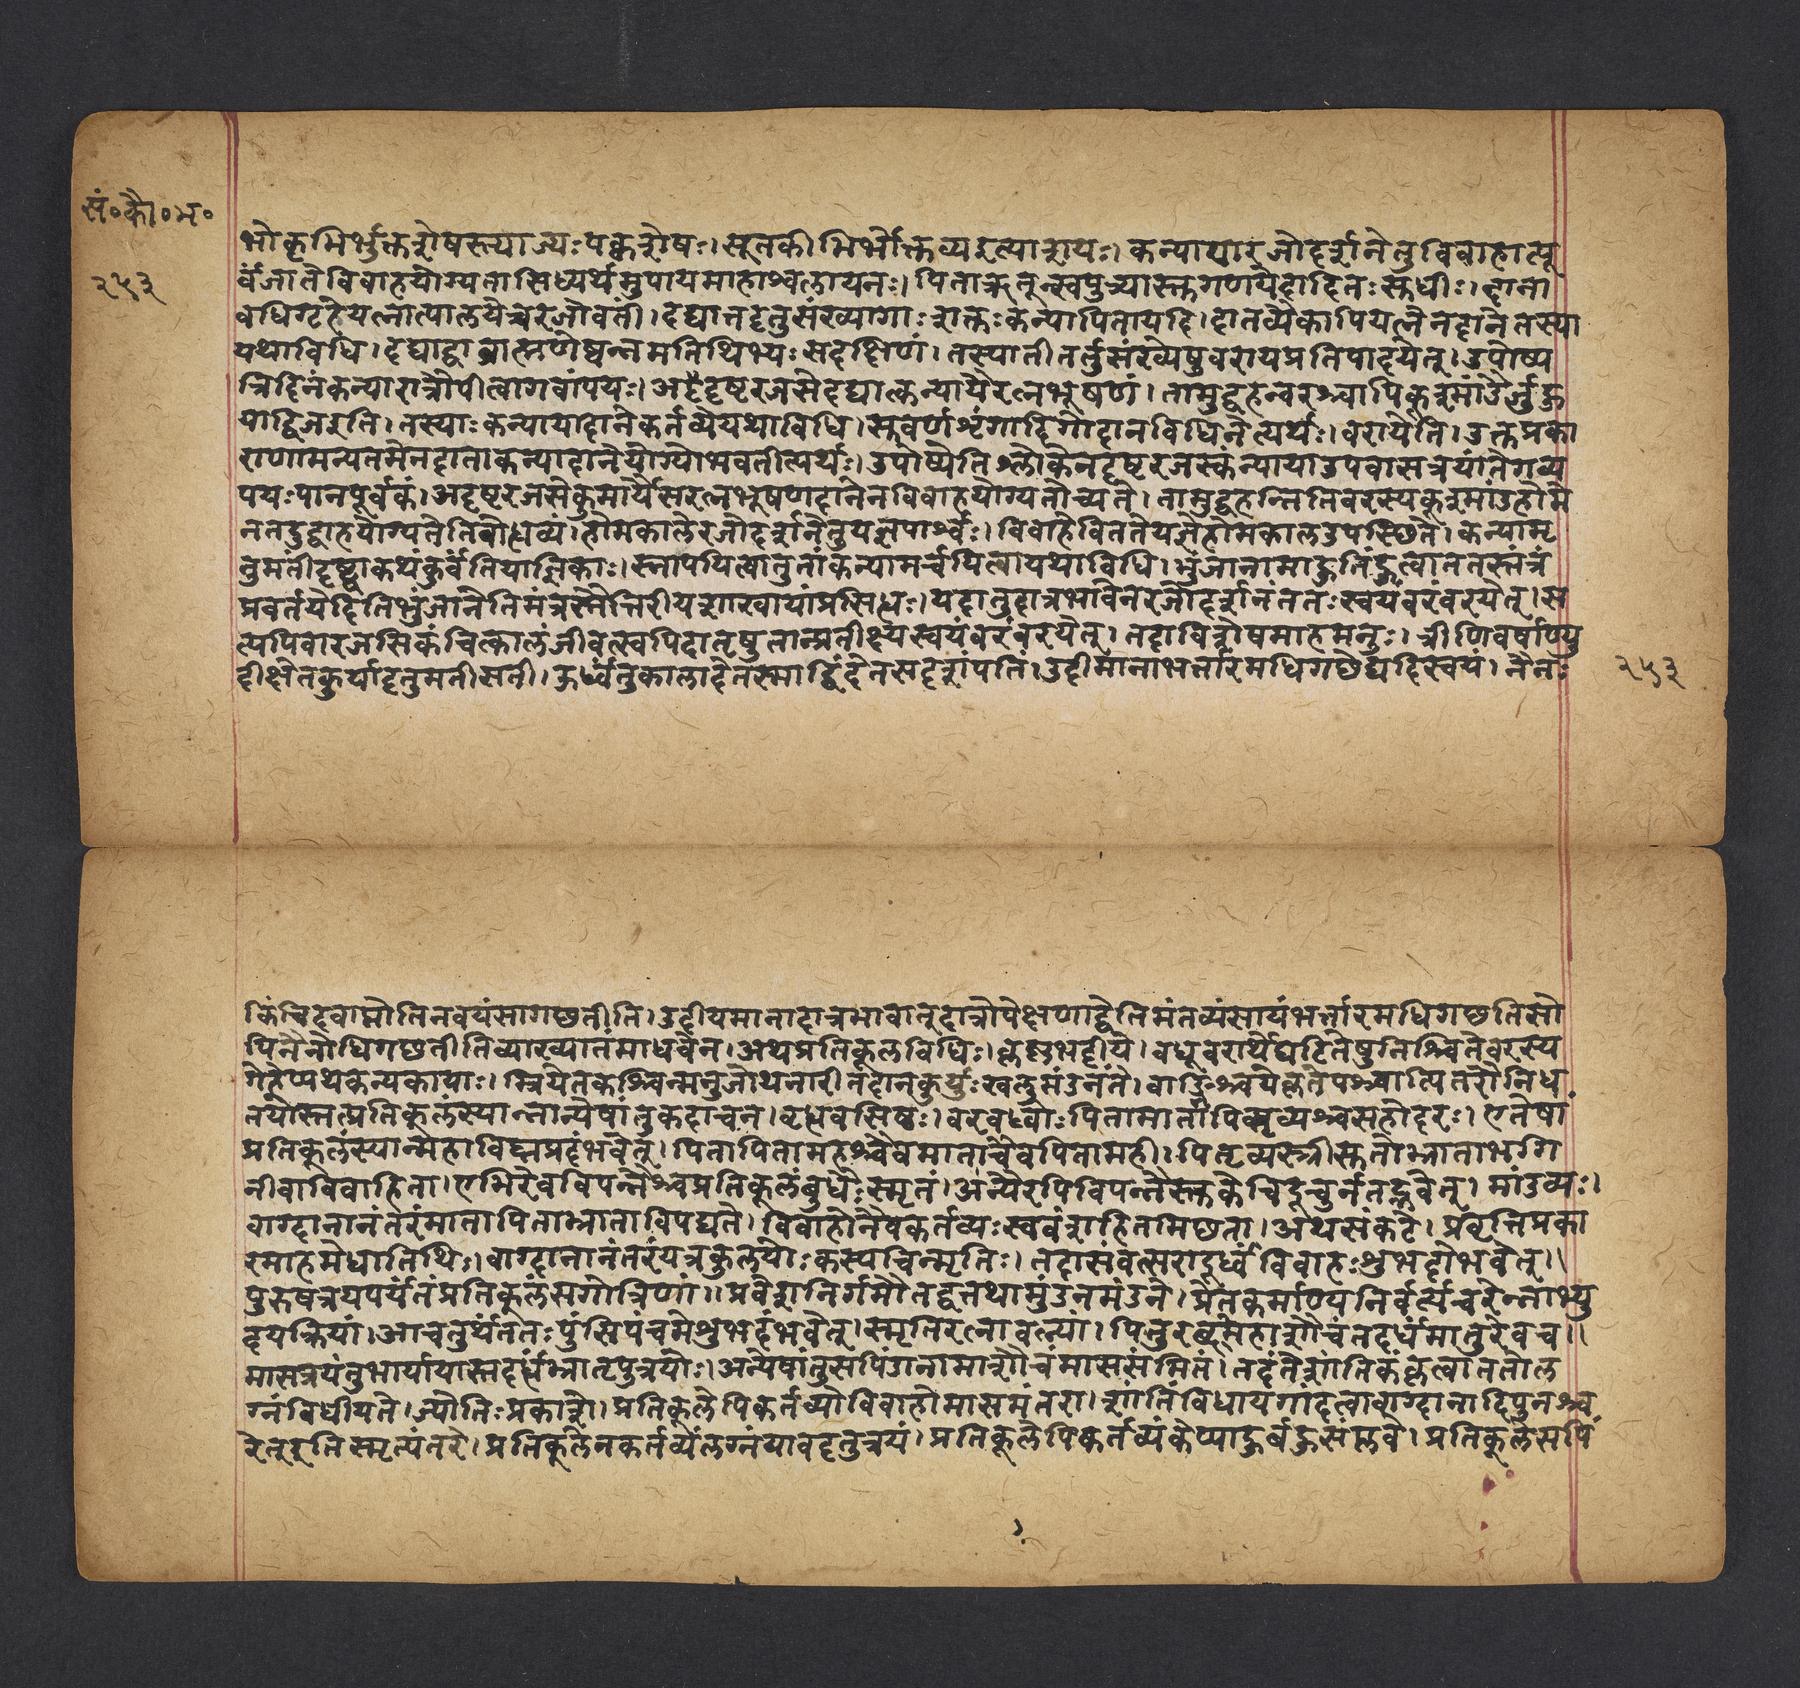 सं॰कौ॰भ॰
२५३
भोकृमिर्भुक्तशेषस्त्याज्यःपक्वशेषः। सूतकीभिर्भोक्तव्यइत्याशयः। कन्यायारजोदर्शनेतुविवाहात्पू
र्वंजातेविवाहयोग्यतासिध्यर्थमुपायमाहाश्वलायनः। पिताऋतून्स्वपुत्र्यास्तुगणयेदादितःसुधीः। दाना
वधिगृहेयत्नात्पालयेच्चरजोवतीं। दद्यात्तदृतुसंख्यागाःशक्तःकन्यापितायदि। दातव्यैकापियत्नेनदानेतस्या
यथाविधि। दद्याद्वाब्राह्मणेष्वन्नमतिथिभ्यःसदक्षिणं। तस्यातीतर्तुसंख्येषुवरायप्रतिपादयेत्। उपोष्य
त्रिदिनंकन्यारात्रौपीत्वागवांपयः। अदृष्टरजसेदद्यात्कन्यायैरत्नभूषणं। तामुद्वहन्वरश्चापिकूश्मांडैर्जुहु
याद्विजइति। तस्याःकन्यायादानेकर्तव्येयथाविधि। सुवर्णशृंगादिगोदानविधिनेत्यर्थः। वरायेति। उक्तप्रका
राणामन्यतमेनदाताकन्यादानेयोग्योभवतीत्यर्थः। उपोष्येतिश्लोकेनदृष्टरजस्कंन्यायाउपवासत्रयांतेगव्य
पयःपानपूर्वकं। अदृष्टरजसेकुमार्यैसरत्नभूषणदानेनविवाहयोग्यतोच्यते। तामुद्वहन्नितिवरस्यकूश्मांडहोमे
नतदुद्वाहयोग्यतेतिबोधव्यं। होमकालेरजोदर्शनेतुयज्ञपार्श्वः। विवाहेविततेयज्ञेहोमकालउपस्छिते। कन्यामृ
तुमतींदृष्ट्वाकथंकुर्वंतियाज्ञिकाः। स्नापयित्वातुतांकन्यामर्चयित्वायथाविधि। युंजानामाहुतिंहुत्वाततस्तंत्रं
प्रवर्तयेदितियुंजानेतिमंत्रस्तैत्तिरीयशाखायांप्रसिधः। यदातुदात्रभावेनरजोदर्शनंततःस्वयंवरंवरयेत्। स
त्यपिवारजसिकंचित्कालंजीवत्स्वपिदातृषुतान्प्रतीक्ष्यस्वयंवरंवरयेत्। तदाविशेषमाहमनुः। त्रीणिवर्षाण्यु
दीक्षेतकुर्यादृतुमतीसती। ऊर्ध्वंतुकालादेतस्माद्विंदेतसदृशंपतिं। उदीमानाभर्त्तारमधिगछेद्यदिस्वयं। नैनः
२५३
किंचिदवाप्नोतिनवयंसागछतीति। उदीयमानादात्रभावात्तुदात्रोपेक्षणाद्वेतिमंतव्यंसायंभर्त्तारमधिगछतिसो
पिनैनोधिगछतीतिव्याख्यातंमाधवेन। अथप्रतिकूलविधिः। कृष्णभट्टीये। वधूवरार्थेघटितेषुनिश्चितेवरस्य
गेहेप्यथकन्यकायाः। म्रियेतकश्चिन्मनुजोथनारीतदानकुर्युःखलुमंडनंते। वाङ्निश्चयेकृतेपश्चात्पितरौनिध
नंययोस्तत्प्रतिकूलंस्यान्नान्येषांतुकदाचन। वृधवसिष्ठः। वरवध्वोःपितामातापितृव्यश्चसहोदरः। एतेषां
प्रतिकूलंस्यान्महाविघ्नप्रदंभवेत्। पितापितामहश्चैवमाताचैवपितामही। पितृव्यस्त्रीसुतोभ्राताभगि
नीवाविवाहिता। एभिरेवविपन्नैश्चप्रतिकूलंबुधैःस्मृतं। अन्यैरपिविपन्नैस्तुकेचिदूचुर्नतद्भवेत्। मांडव्यः।
वाग्दानानंतरंमातापिताभ्राताविपद्यते। विवाहोनैवकर्तव्यःस्ववंशहितमिछता। अथसंकटे। प्रवृत्तिप्रका
रमाहमेधातिथिः। वाग्दानानंतरंयत्रकुलयोःकस्यचिन्मृतिः। तदासंवत्सरादूर्ध्वंविवाहःशुभदोभवेत्।।
पुरुषत्रयपर्यंतंप्रतिकूलंसगोत्रिणां।। प्रवेशनिर्गमौतद्वत्तथामुंडनमंडने। प्रेतकर्माण्यनिर्वर्त्यचरेन्नाभ्यु
दयक्रियां। आचतुर्थंततःपुंसिपंचमेशुभदंभवेत्। स्मृतिरत्नावल्यां। पितुरब्दमिहाशौचंतदर्धंमातुरेवच।।
मासत्रयंतुभार्यायास्तदर्धंभ्रातृपुत्रयोः। अन्येषांतुसपिंडानामाशौचंमाससंमितं। तदंतेशांतिकंकृत्वाततोल
ग्नंविधीयते। ज्योतिःप्रकाशे। प्रतिकूलेपिकर्तव्योविवाहोमासमंतरा। शांतिंविधायगांदत्वावाग्दानादिपुनश्च
रेत्इतिस्मृत्यंतरे। प्रतिकूलेनकर्तव्येलग्नंयावदृतुत्रयं। प्रतिकूलेपिकर्तव्यंकेप्याहुर्बहुसंप्लवे। प्रतिकूलेसपिं